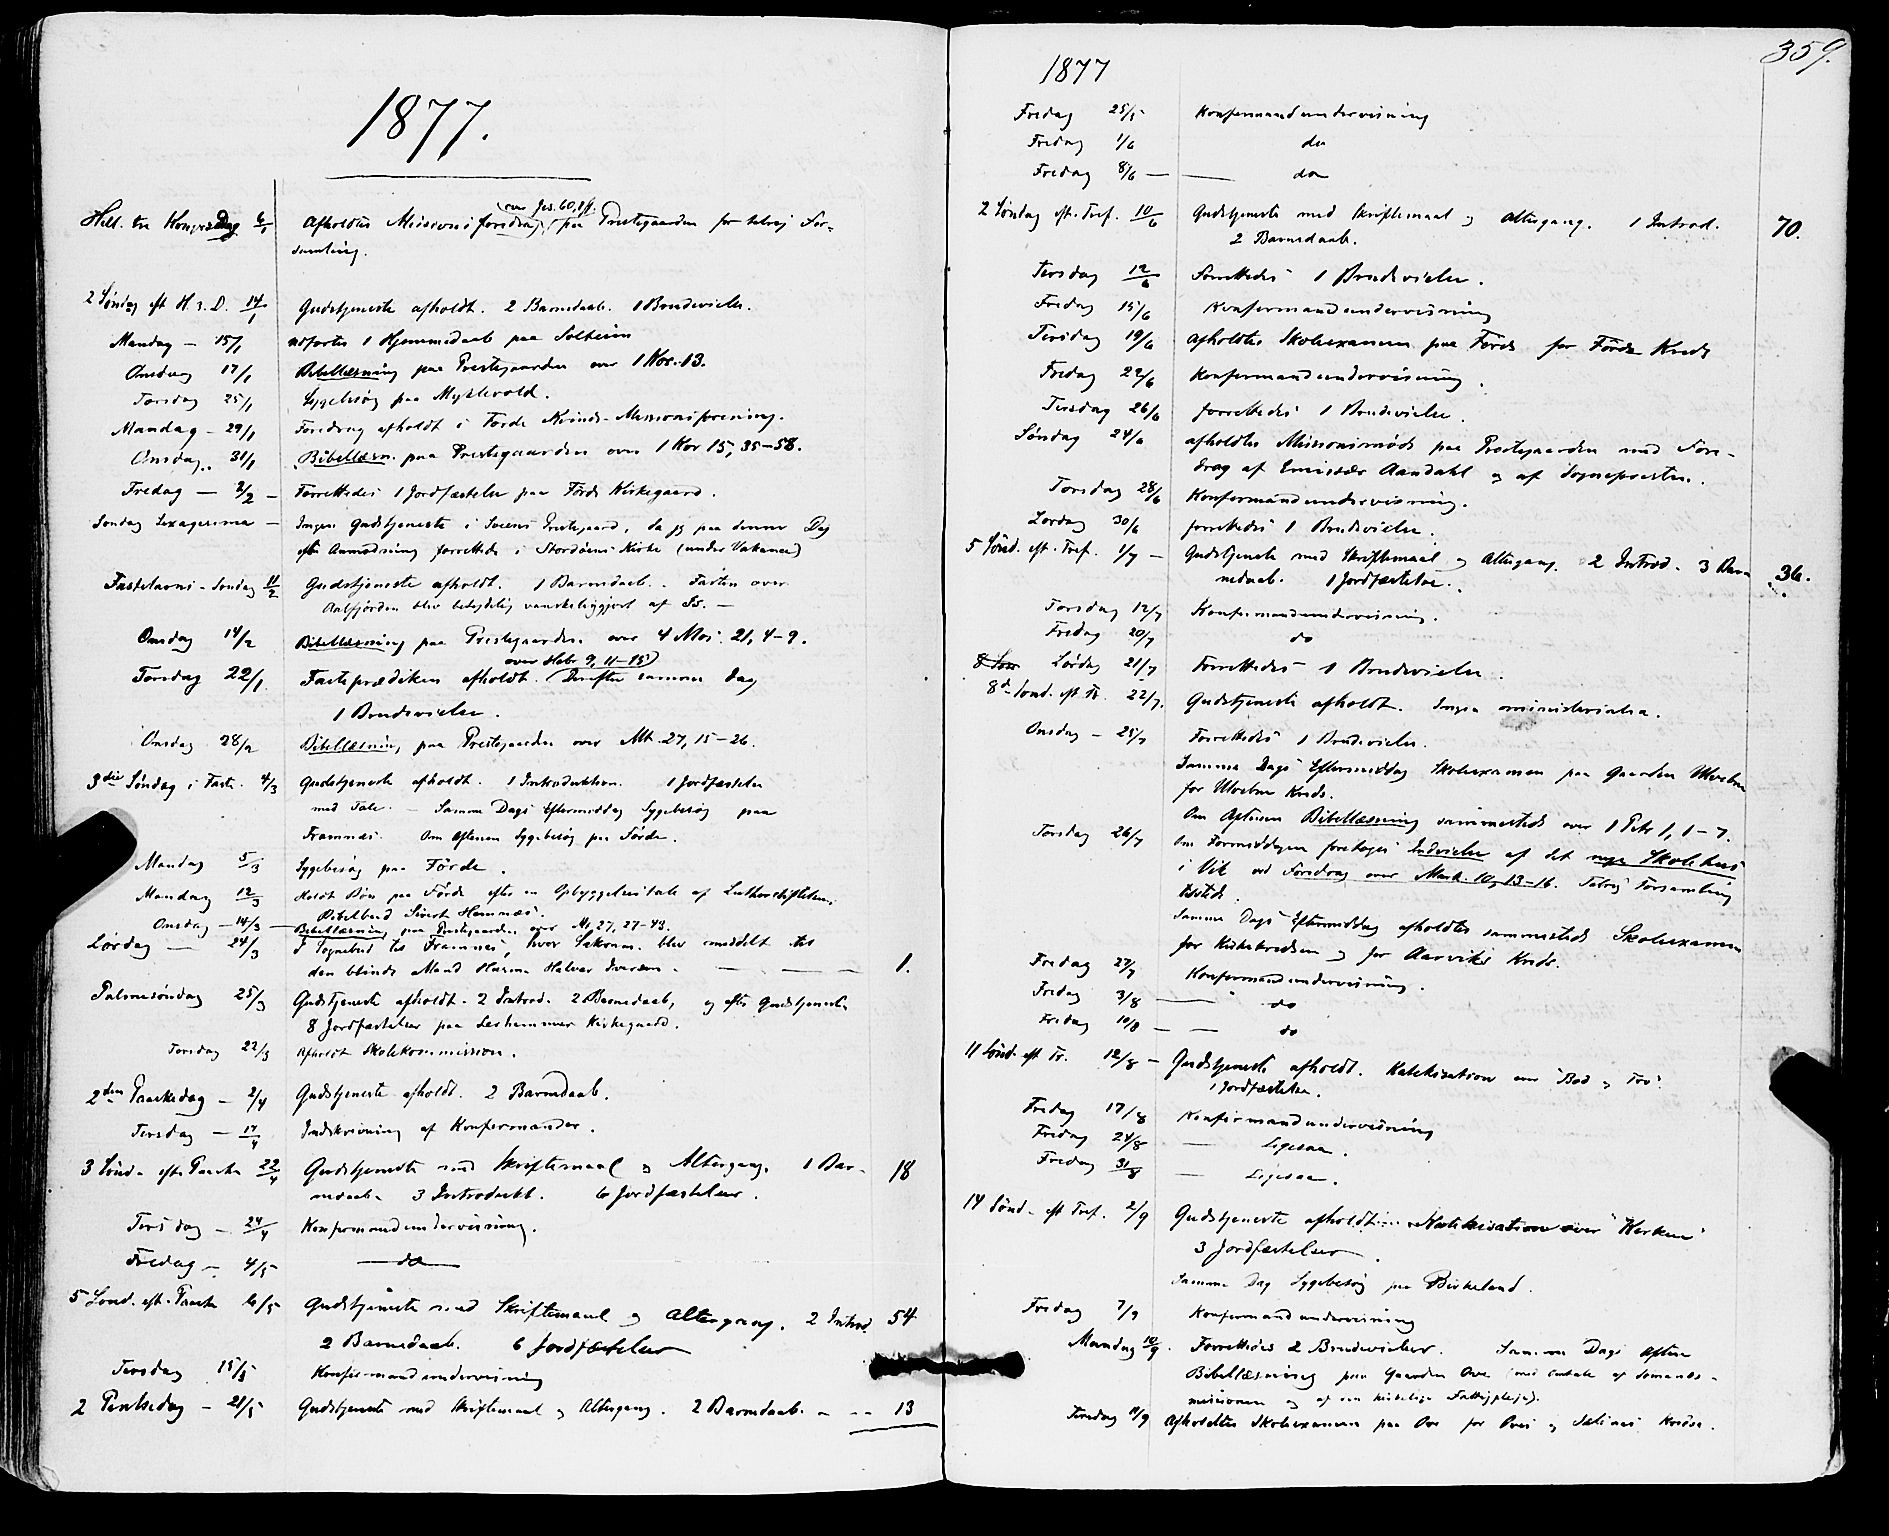 1877.
Hell. tre Kongers Dag 6/1 Afholdtes Missionsforedrag (over Jes. 60, 1 ff.) paa Prestegaarden for talrig For-
samling.
2 Søndag eft H. 3. D. 14/1 Gudstjeneste afholdt. 2 Barnedaab. 1 Brudevielse.
Mandag – 15/1 udførtes 1 Hjemmedaab paa Solheim
Onsdag 17/1 Bibellæsning paa Prestegaarden over 1 Kor. 13.
Torsdag 25/1 Sygebesøg paa Myklevold.
Mandag – 29/1 Foredrag afholdt i Førde Kvinde-Missionsforening.
Onsdag 31/1 Bibellæsn. paa Prestegaarden over 1 Kor 15, 35–58.
Fredag – 2/2 – Forrettedes 1 Jordfæstelse paa Førde Kirkegaard.
Søndag Sexagesima – Ingen Gudstjeneste i Sveens Prestegjæld, da jeg paa denne Dag
efter Anmodning forrettede i Stordøens Kirke (under Vakancen)
Fastelavns-Søndag 11/2 Gudstjeneste afholdt. 1 Barnedaab. Farten over
Aalfjorden blev betydelig vanskeliggjort af Is. –
Onsdag 14/2 Bibellæsning paa Prestegaarden over 4 Mos. 21, 4–9.
Torsdag 22/2 Fasteprædiken afholdt. (over Hebr 9, 11–15) Derefter samme Dag
1 Brudevielse.
Onsdag 28/2 Bibellæsning paa Prestegaarden over Mt. 27, 15–26.
3die Søndag i Faste. 4/3 Gudstjeneste afholdt. 1 Introduktion. 1 Jordfæstelse
med Tale. – Samme Dags Eftermiddag Sygebesøg paa
Framnæs. Om Aftenen Sygebesøg paa Førde.
Mandag 5/3 Sygebesøg paa Førde.
Mandag 12/3 Holdt Bøn paa Førde efter en Opbyggelsestale af Lutherstiftelsens
Bibelbud Sivert Hamnæs.
Onsdag – 14/3 – Bibellæsning paa Prestegaarden over Mt. 27, 27–43.
Lørdag – 24/3 I Sognebud til Framnes, hvor Sakram. blev meddelt til
den blinde Mand Husm. Halvar Iversen. – – – 1.
Palmesøndag 25/3 Gudstjeneste afholdt. 2 Introd. 2 Barnedaab, og efter Gudstjenesten
8 Jordfæstelser paa Leshammer Kirkegaard.
Torsdag 22/3 Afholdt Skolekommission.
2den Paaskedag – 2/4 Gudstjeneste afholdt. 2 Barnedaab.
Tirsdag – 17/4 Indskrivning af Konfirmander.
3 Sønd. efter Paaske 22/4 Gudstjeneste med Skriftemaal og Altergang. 1 Bar- 18
nedaab. 3 Introdukt. 6 Jordfæstelser.
Tirsdag – 24/4 Konfirmandundervisning.
Fredag – 4/5 – do –
5 Sønd. eft. Paaske 6/5 Gudstjeneste med Skriftemaal og Altergang. 2 Introd. 54
2 Barnedaab. 6 Jordfæstelser
Tirsdag 15/5 Konfirmandundervisning
2 Pintsedag – 21/5 Gudstjeneste med Skriftemaal og Altergang. 2 Barnedaab. – – 13
359.
1877
Fredag 25/5 Konfirmandundervisning
Fredag 1/6 do
Fredag 8/6 – – do
2 Søndag eft. Tref. 10/6 Gudstjeneste med Skriftemaal og Altergang. 1 Introd. 70.
2 Barnedaab.
Tirsdag 12/6 Forrettedes 1 Brudevielse.
Fredag 15/6 Konfirmandundervisning
Tirsdag 19/6 afholdtes Skoleexamen paa Førde for Førde Kreds
Fredag 22/6 Konfirmandundervisning.
Tirsdag 26/6 forrettedes 1 Brudevielse.
Søndag 24/6 afholdtes Missionsmøde paa Prestegaarden med Fore-
drag af Emissær Aandahl og af Sognepresten.
Torsdag 28/6 Konfirmandundervisning.
Lørdag 30/6 forrettedes 1 Brudevielse.
5 Sønd. eft. Tref. 1/7 – Gudstjeneste med Skriftemaal og Altergang. 2 Introd. 3 Bar- 36.
nedaab. 1 Jordfæstelse.
Torsdag 12/7 Konfirmandundervisning.
Fredag 20/7 do
8 Søn Lørdag 21/7 Forrettedes 1 Brudevielse.
8de Sønd. eft Tr. 22/7. Gudstjeneste afholdt. Ingen ministerialia.
Onsdag – 25/7 Forrettedes 1 Brudevielse.
Samme Dags Eftermiddag Skoleexamen paa Gaarden
for Kreds.
Om Aftenen Bibellæsning sammesteds over 1 Petr 1, 1–7.
Torsdag 26/7 Om Formiddagen foretoges Indvielse af det nye Skolehus
i Vik ved Foredrag over Mark. 10, 13–16. Talrig Forsamling
tilstede.
Samme Dags Eftermiddag afholdtes sammesteds Skoleexamen
for Kirkekredsen og for Aarviks Kreds.
Fredag 27/7 Konfirmandundervisning.
Fredag 3/8 – do
Fredag 10/8 – – do
11 Sønd. eft Tr. 12/8 – Gudstjeneste afholdt. Katekisation over "Bod og Tro".
1 Jordfæstelse.
Fredag 17/8 Konfirmandundervisning
Fredag 24/8 – Ligesaa.
Fredag 31/8 – Ligesaa.
14 Sønd. eft Tref. 2/9 Gudstjeneste afholdt. Katekisation over "Kirken"
3 Jordfæstelser.
Samme Dag Sygebesøg paa Birkeland.
Fredag 7/9 Konfirmandundervisning
Mandag 10/9. Forrettedes 2 Brudevielser. Samme Dags Aften
Bibellæsning paa Gaarden Ove (med Omtale af Sømands-
missionen og af den kirkelige Fattigpleje).
Tirsdag 11/9 Afholdtes Skoleexamen paa Ove for Oves og Kredse.